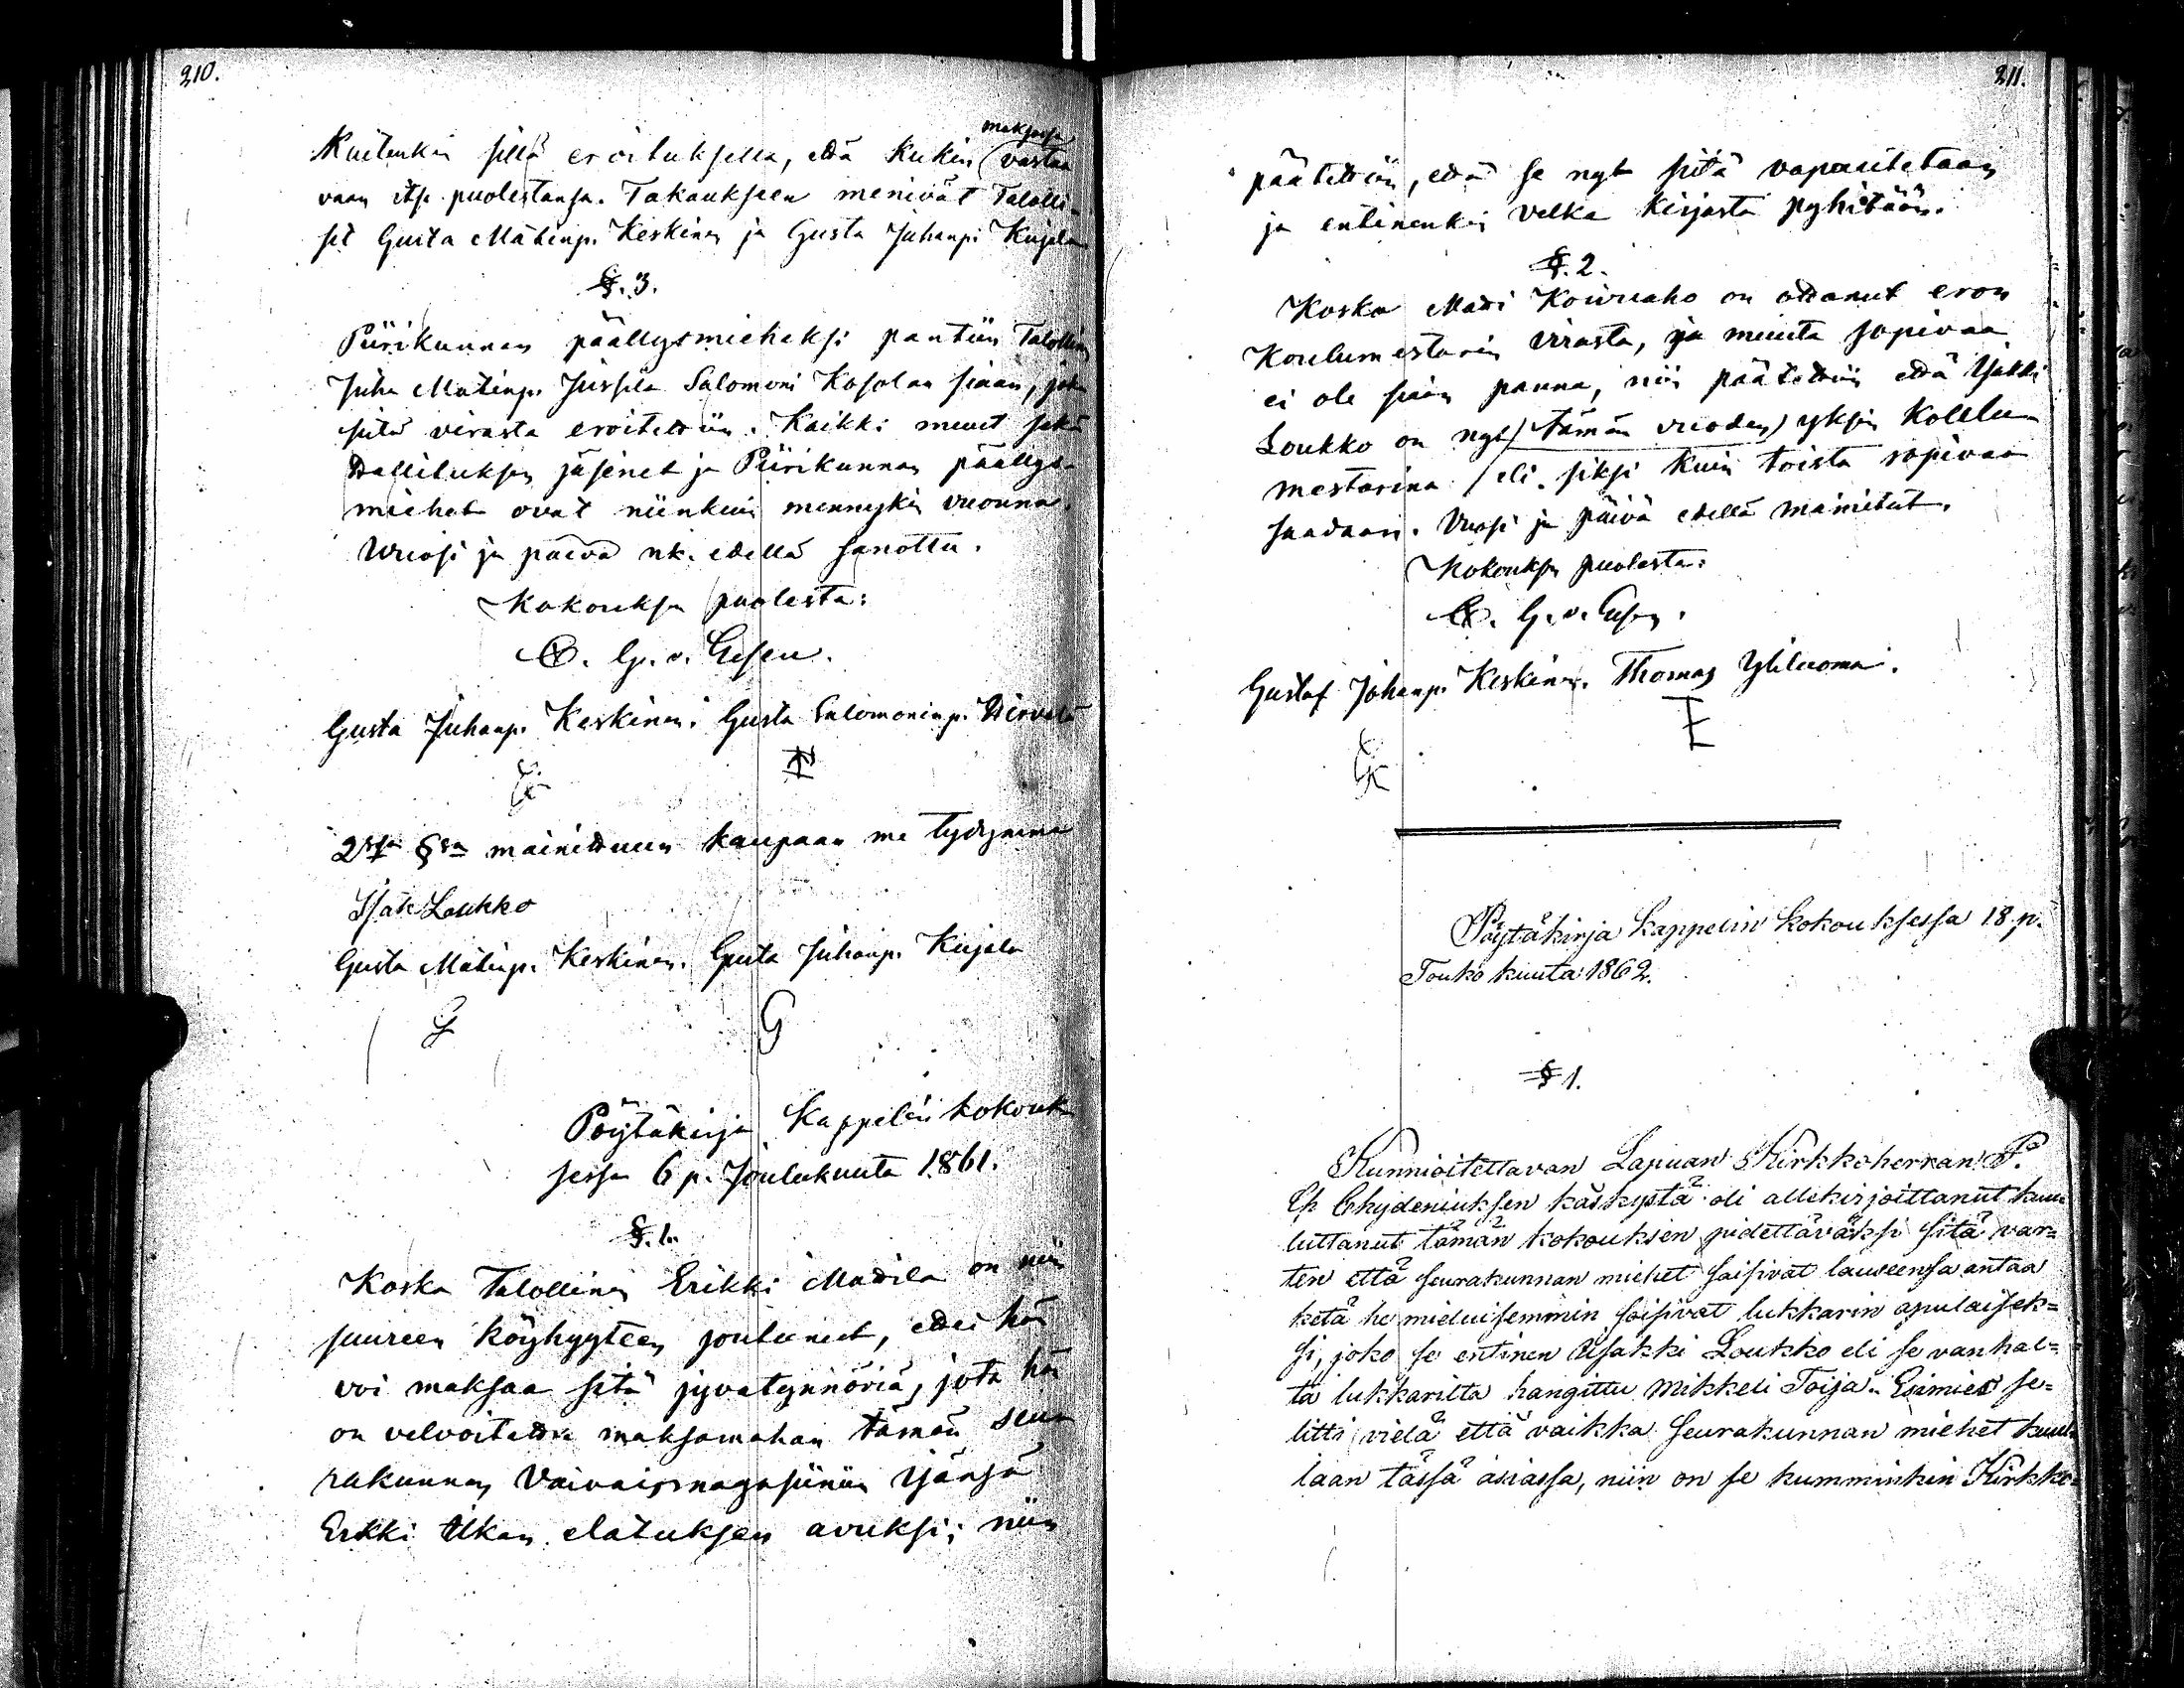 210.
maksossa
Kuitenkin sillä eroituksella, että kukin vastaa
vaan itse puolestansa. Takaukseen menivät Talolli-
set Gusta Matinp. Keskinen ja Gusta Juhanp. Kujala
§. 3.
Piirikunnan päällysmieheksi pantiin Talollin
Juha Matinp. Jussila Salomoni Kosolan siaan, joka
siitä virasta eroitettiin. Kaikki muut sekä
Wallituksen jäsenet ja Piirikunnan päällys-
miehet ovat niinkuin mennykin vuonna.
Wuosi ja päivä nk. edellä sanottu.
Kokouksen puolesta:
C. G. v. Essen.
Gusta Juhanp. Keskinen. Gusta Salomoninp. Wirvala
2ssa §ssa mainittuun kaupaan me tydymme
Isak Loukko
Gusta Matinp. Keskinen. Gusta Juhanp. Kujala
G G
Pöytäkirja Kappelin kokouk
sessa 6 p. Joulukuuta 1861.
§. 1.
Koska Talollinen Erikki Madila on niin
suureen köyhyyteen joutunut, ettei hän
voi maksaa sitä jyvatynnöriä, jota hän
on velvoitettu maksamahan tämän seu
rakunnan Vaivaismagasiiniin
Erkki Ilkan elatuksen avuksi; niin
211.
päätettiin, että se nyt siitä vapautetaan
ja entinenkin velka kirjasta pyhitään.
§. 2.
Koska Matti Koivuaho on ottanut eron
Koulumestarin virasta, ja muuta sopivaa
ei ole siaan panna, niin päätettiin että Isakki
Loukko on nyt (tämän vuoden) yksin Koulu
mestarina / eli siksi kuin toista sopivaa
saadaan. Vuosi ja päivä edellä mainitut.
Kokouksen puolesta:
C. G. v. Essen.
Gustaf Johanp. Keskinen. Thomas Yliluoma.
GK
Pöytäkirja Kappelin kokouksessa 18 p.
Touko kuuta 1862.
§ 1.
Kunnioitettavan Lapuan Kirkkoherran
Chydeniuksen käskystä oli allekirjoittanut kuu
luttanut tämän kokouksen pidettäväksi sitä var=
ten että seurakunnan miehet saisivat lauseensa antaa
ketä he mieluisemmin soisivat lukkarin apulaisek=
si, joko se entinen Isakki Loukko eli se vanhal=
ta lukkarilta hangittu Mikkeli Toija. Esimies se=
litti vielä että vaikka seurakunnan miehet kuul
laan tässä asiassa, niin on se kumminkin Kirkko=